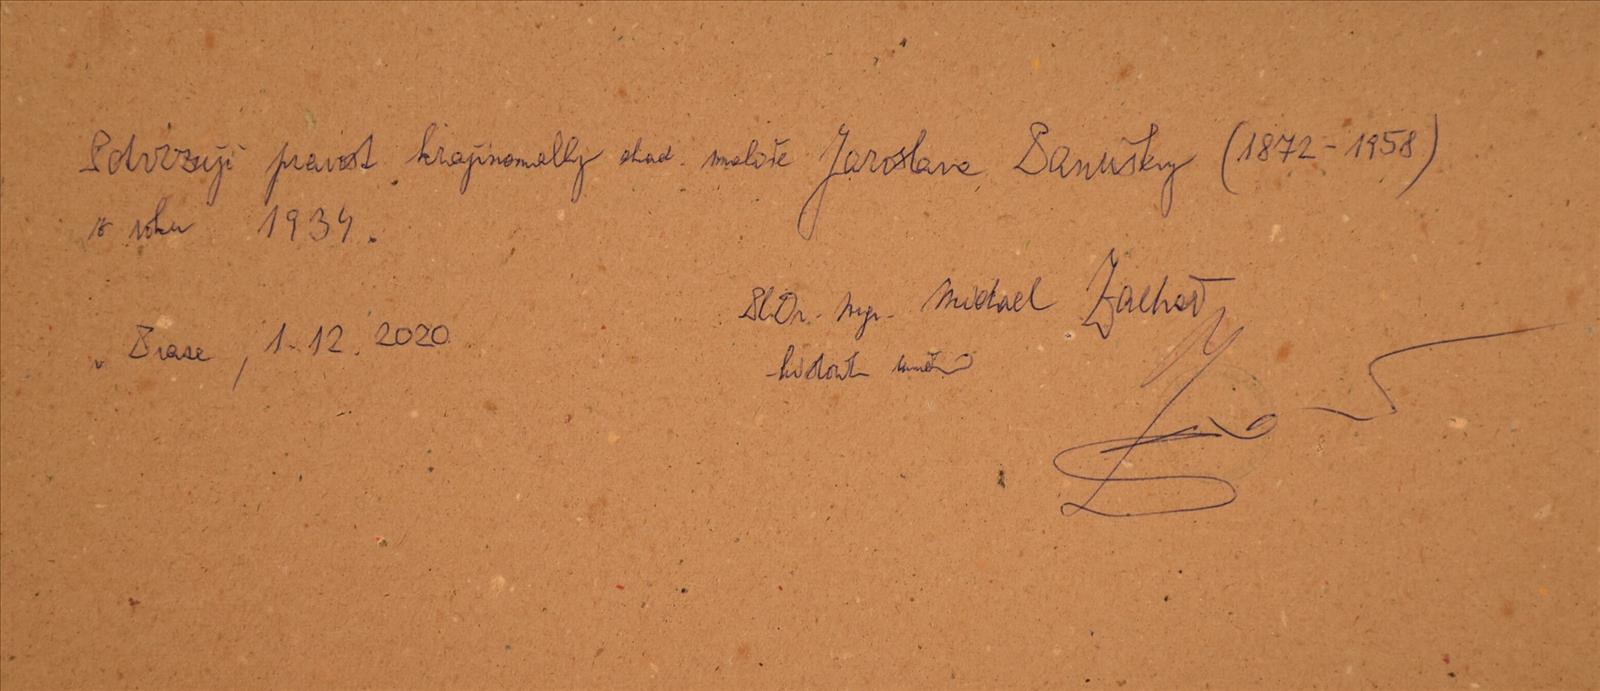 Potvrzuji pravost krajinomalby akad. malíře Jaroslava Panušky (1872-1958)
z roku 1934.
PhDr. Mgr. Michael Zachař
v Praze, 1.12.2020
historik umění